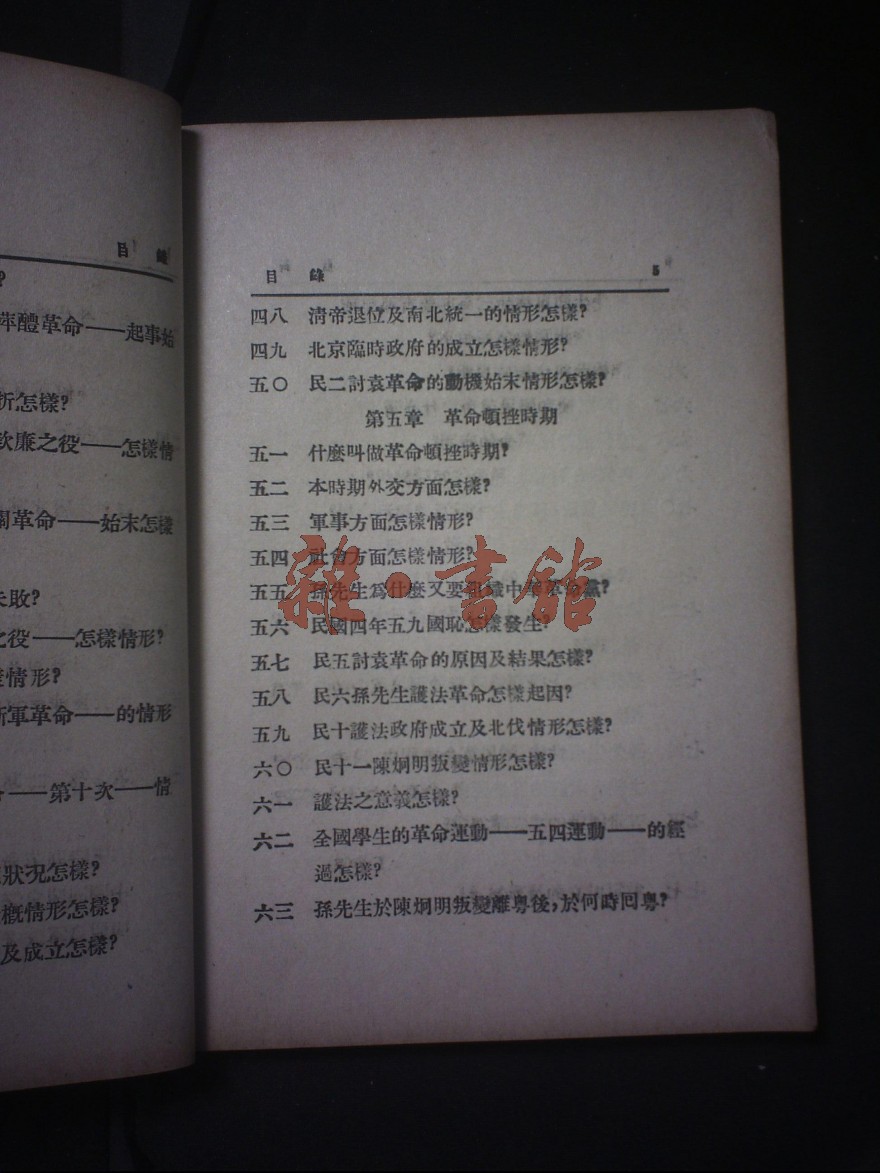 目 錄
?
萍醴革命——起事始
折怎樣?
欽廉之役——怎樣情
關革命——始末怎樣
失敗?
之役——怎樣情形?
情形?
新軍革命——的情形
——第十次——情
狀況怎樣?
概情形怎樣?
及成立怎樣?
目 錄 5
四八 清帝退位及南北統一的情形怎樣?
四九 北京臨時政府的成立怎樣情形?
五〇 民二討袁革命的動機始末情形怎樣?
第五章 革命頓挫時期
五一 什麼叫做革命頓挫時期?
五二 本時期外交方面怎樣?
五三 軍事方面怎樣情形?
五四 社會方面怎樣情形?
五五 孫先生爲什麼又要組織中華革命黨?
五六 民國四年五九國恥怎樣發生?
五七 民五討袁革命的原因及結果怎樣?
五八 民六孫先生護法革命怎樣起因?
五九 民十護法政府成立及北伐情形怎樣?
六〇 民十一陳炯明叛變情形怎樣?
六一 護法之意義怎樣?
六二 全國學生的革命運動——五四運動——的經
過怎樣?
六三 孫先生於陳炯明叛變離粵後,於何時回粵?
雜·書館